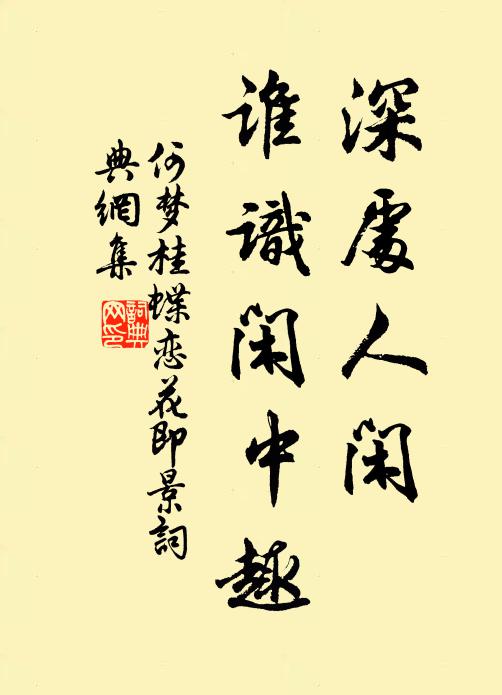 深處人閑
誰識閑中趣
何梦桂蝶恋花即景詞
典網集
詞典
网印